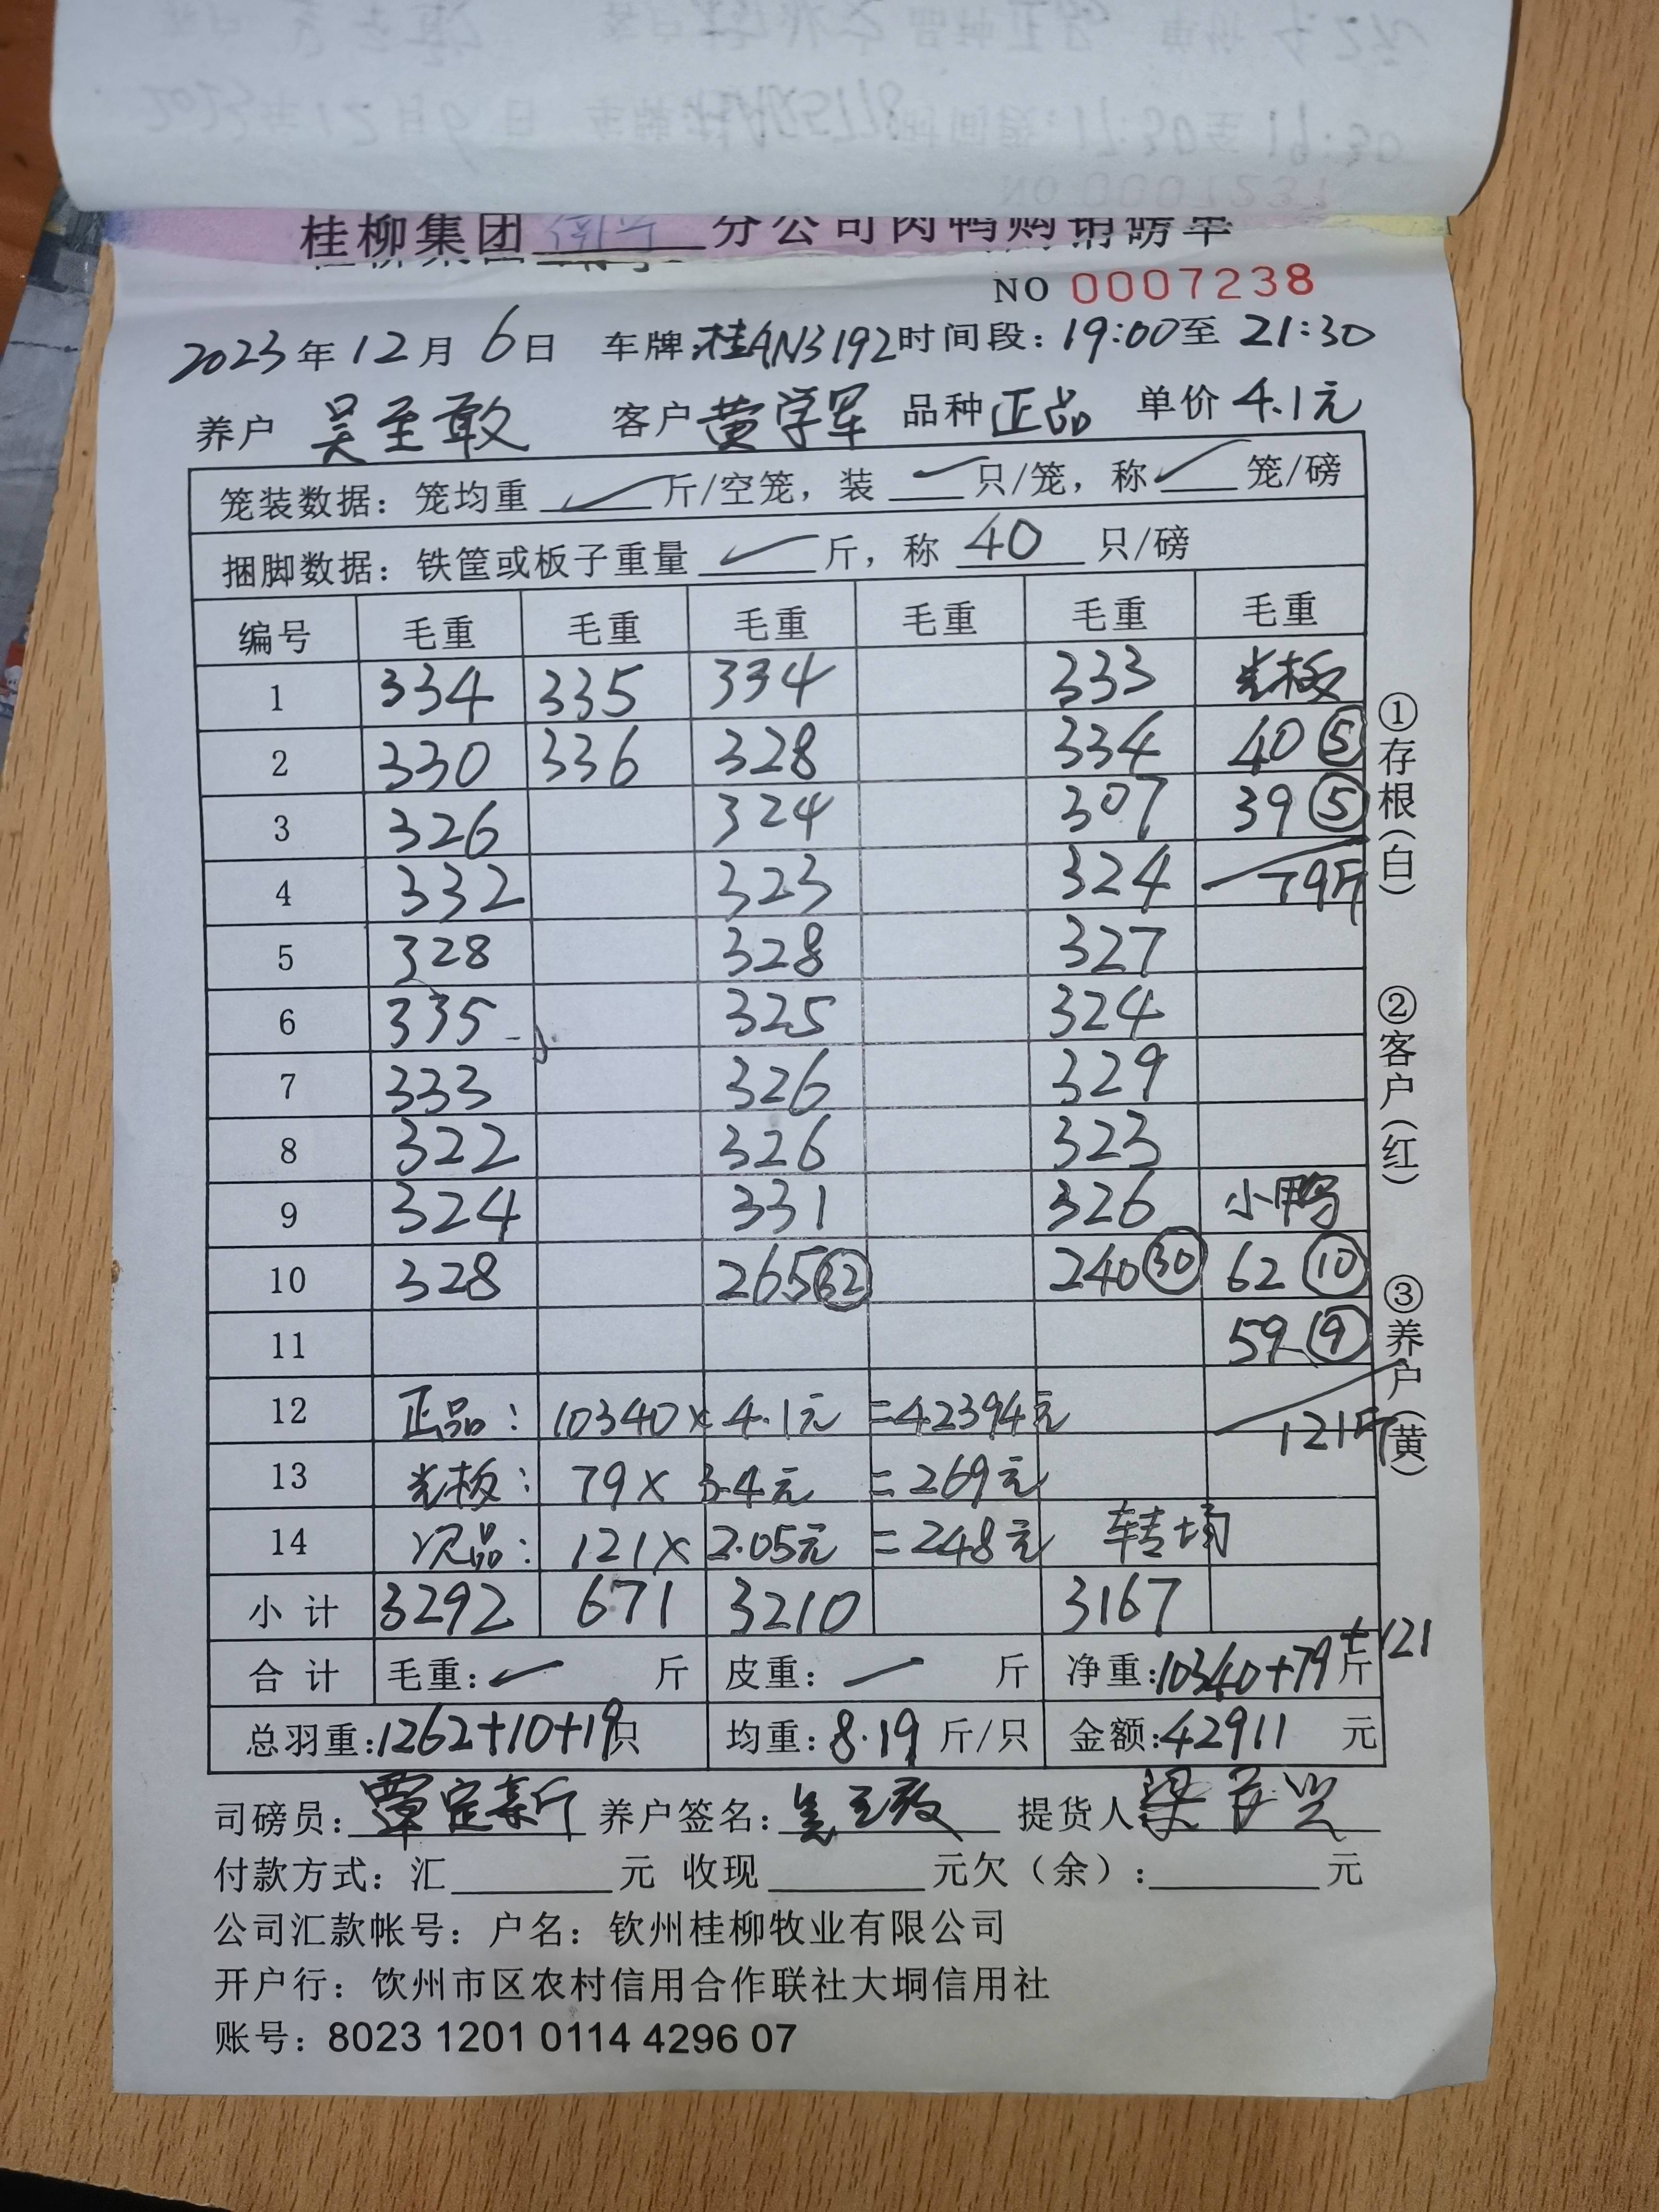 桂柳集团 南宁 分公司肉鸭购销磅单
NO 0007238
2023年12月6日 车牌:桂AN3192 时间段:19:00至21:30
养户 吴至敢 客户 黄学军 品种 正品 单价 4.1元
笼装数据:笼均重 ✓ 斤/空笼,装 ✓ 只/笼,称 ✓ 笼/磅
捆脚数据:铁筐或板子重量 ✓ 斤,称 40 只/磅
编号 毛重 毛重 毛重 毛重 毛重 毛重
1 334 335 334 333 光板
2 330 336 328 334 40 ⑤
3 326 324 307 39 ⑤
4 332 323 324 79斤
5 328 328 327
6 335 325 324
7 333 326 329
8 322 326 323
9 324 331 326 小鸭
10 328 265 ㉜ 240 ㉚ 62 ⑩
11 59 ⑨
12 正品: 10340× 4.1元 =42394元 121斤
13 光板: 79× 3.4元 =269元
14 次品: 121× 2.05元 =248元 转场
小计 3292 671 3210 3167
合计 毛重: 斤 皮重: 斤 净重:10340+79斤+121
总羽重:1262+10+19只 均重:8.19斤/只 金额:42911元
司磅员:覃定新 养户签名:吴至敢 提货人
付款方式:汇 元 收现 元欠(余): 元
公司汇款帐号:户名:钦州桂柳牧业有限公司
开户行:饮州市区农村信用合作联社大垌信用社
账号:8023 1201 0114 4296 07
①存根(白)
②客户(红)
③养户(黄)